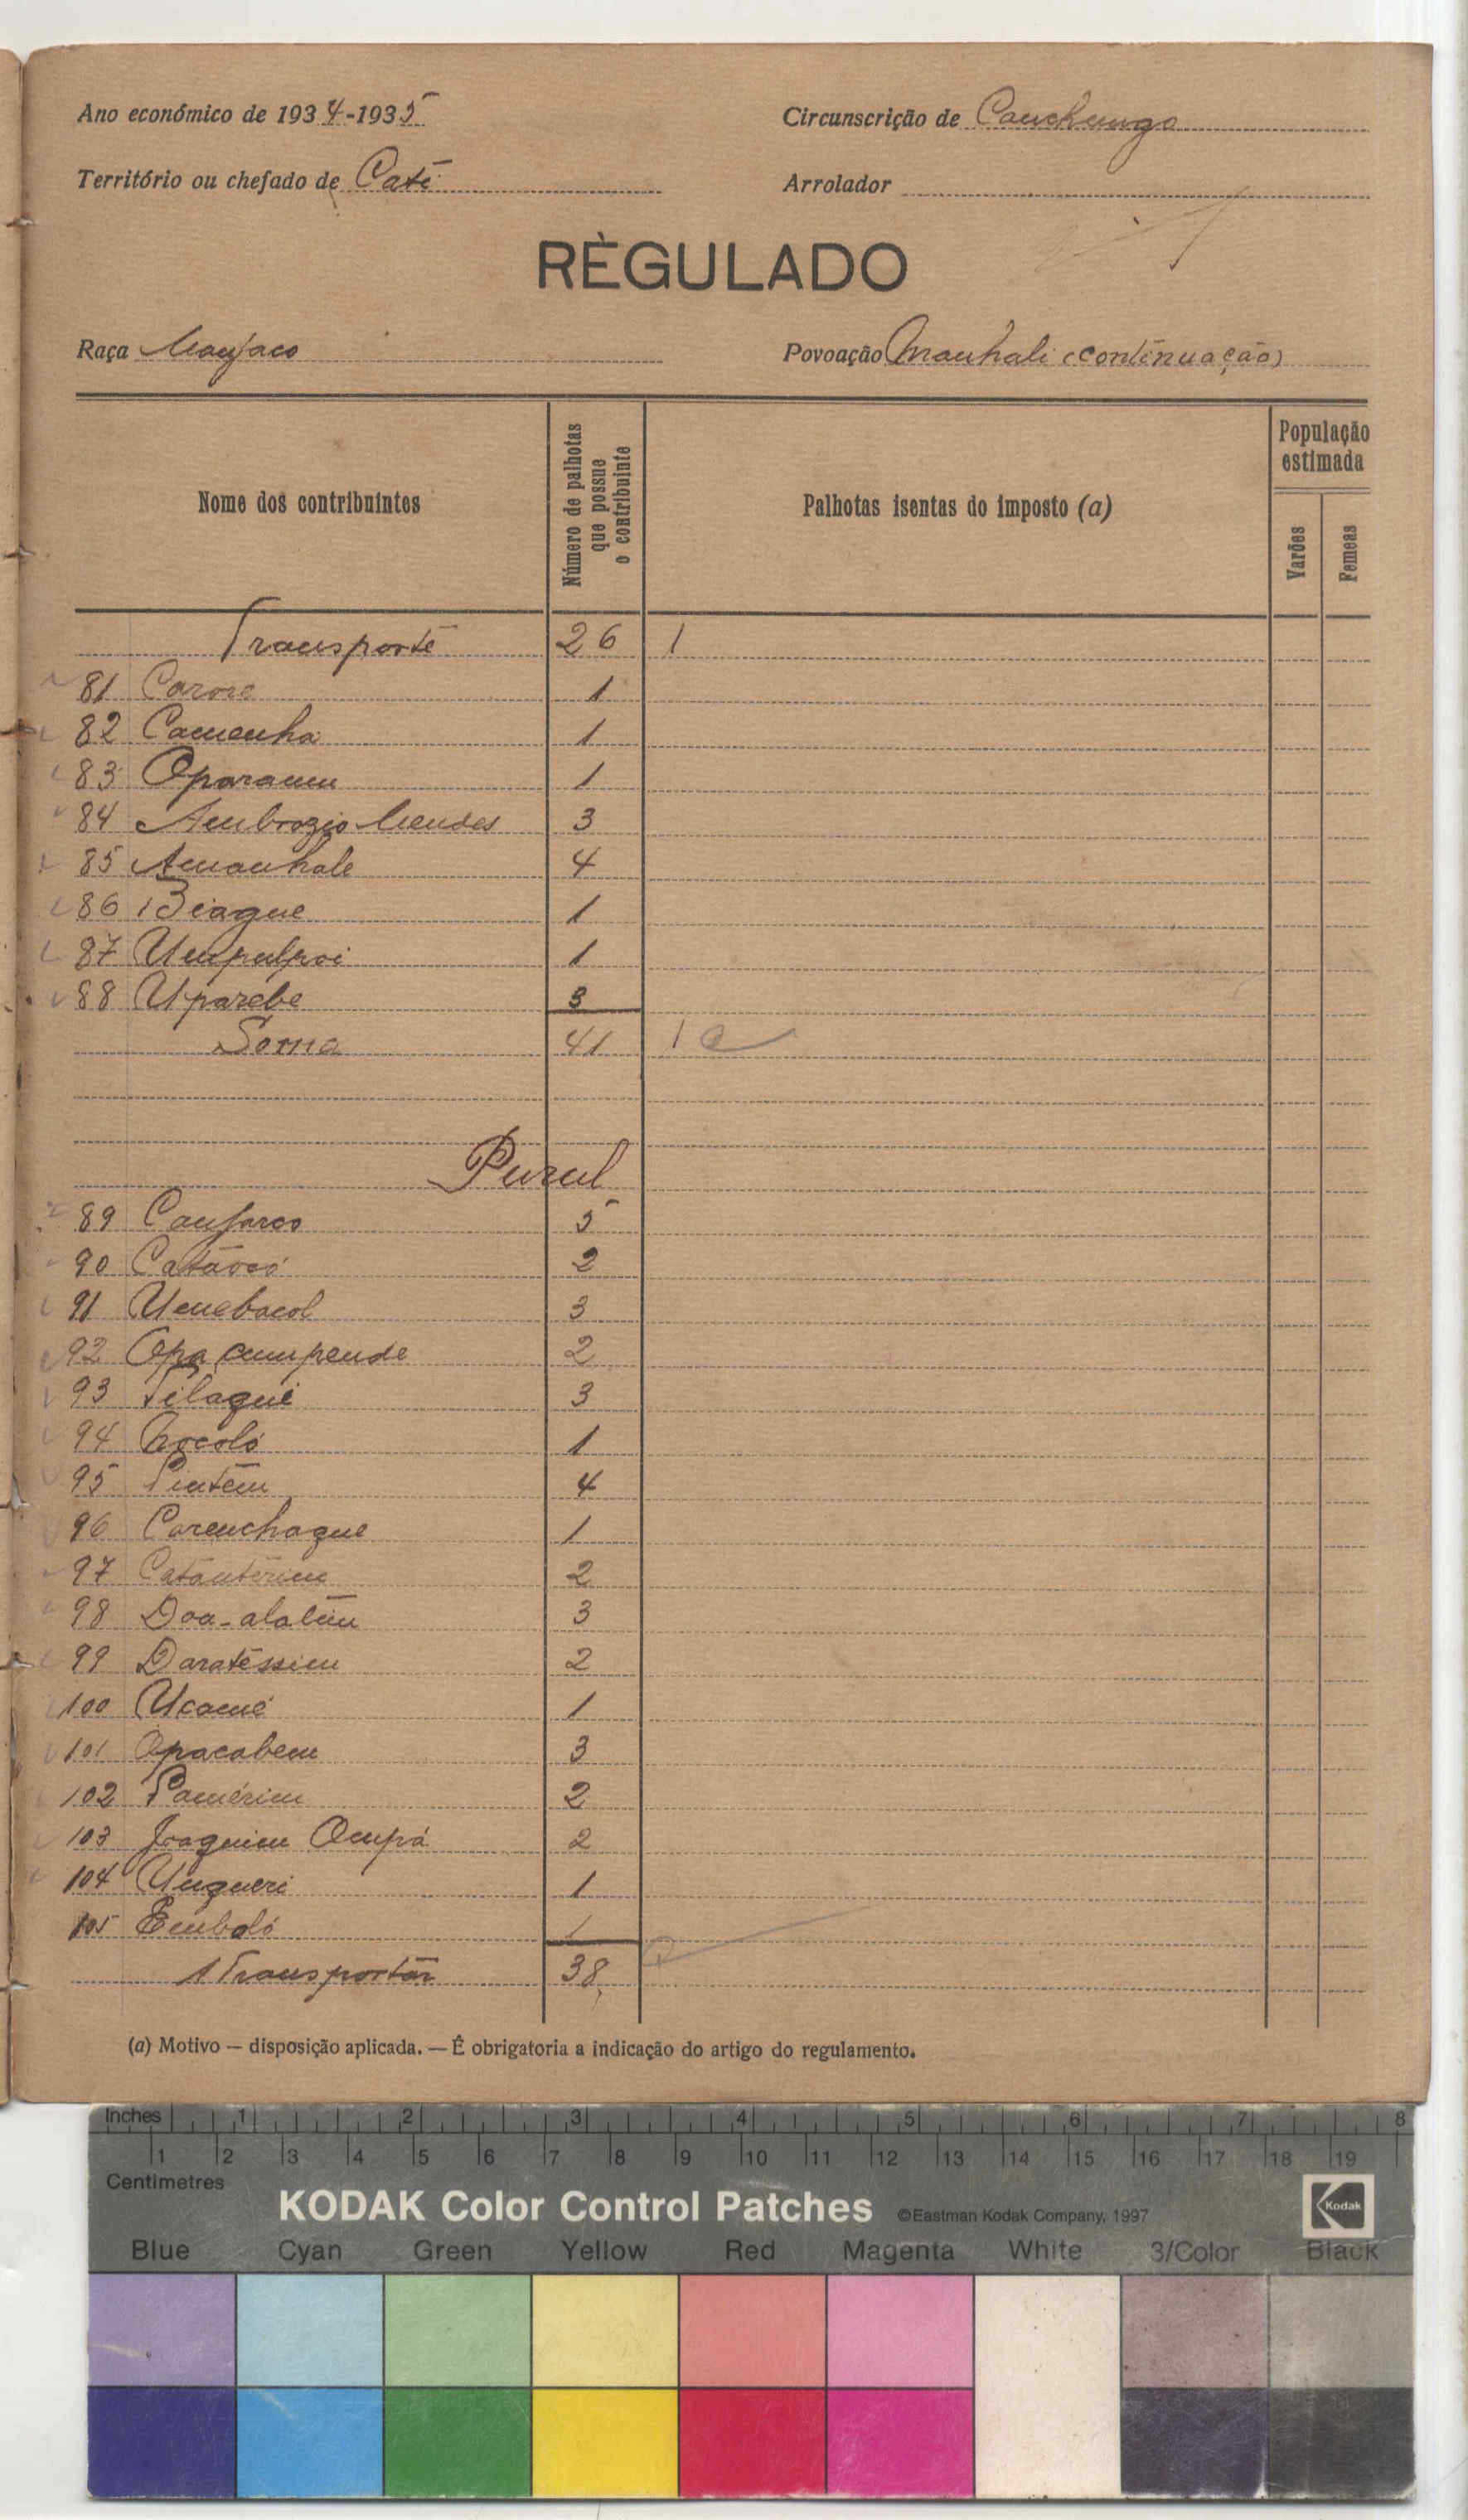 Ano económico de 1934-1935
Circunscrição de Canchungo
Território ou chefado de Cati
Arrolador
RÈGULADO
Raça Manjaco
Povoação Manhali (continuação)
Nome dos contribuintes
Número de palhotas que possue o contribuinte
Palhotas isentas do imposto (a)
População estimada
Varões
Femeas
Transporte 26 1
81 1
82 Camenha 1
83 Oparamm 1
84 Ambrozio Mendes 3
85 Amanhale 4
86 Biague 1
87 Umpulpoi 1
88 Uparebe 3
Soma 41 1
Purul
89 5
90 2
91 Umebacol 3
92 Opa campende 2
93 Tilaqui 3
94 1
95 Pintém 4
96 Carenchaque 1
97 2
98 3
99 Daratéssim 2
100 Ucamé 1
101 Opacabem 3
102 Pamérim 2
103 Joaquim Ocupá 2
104 Ungueri 1
105 Emboló 1
A Transportar 38
(a) Motivo — disposição aplicada. — É obrigatoria a indicação do artigo do regulamento.
Inches 1 2 3 4 5 6 7 8
1 2 3 4 5 6 7 8 9 10 11 12 13 14 15 16 17 18 19
Centimetres
KODAK Color Control Patches ©Eastman Kodak Company, 1997 Kodak
Blue Cyan Green Yellow Red Magenta White 3/Color Black